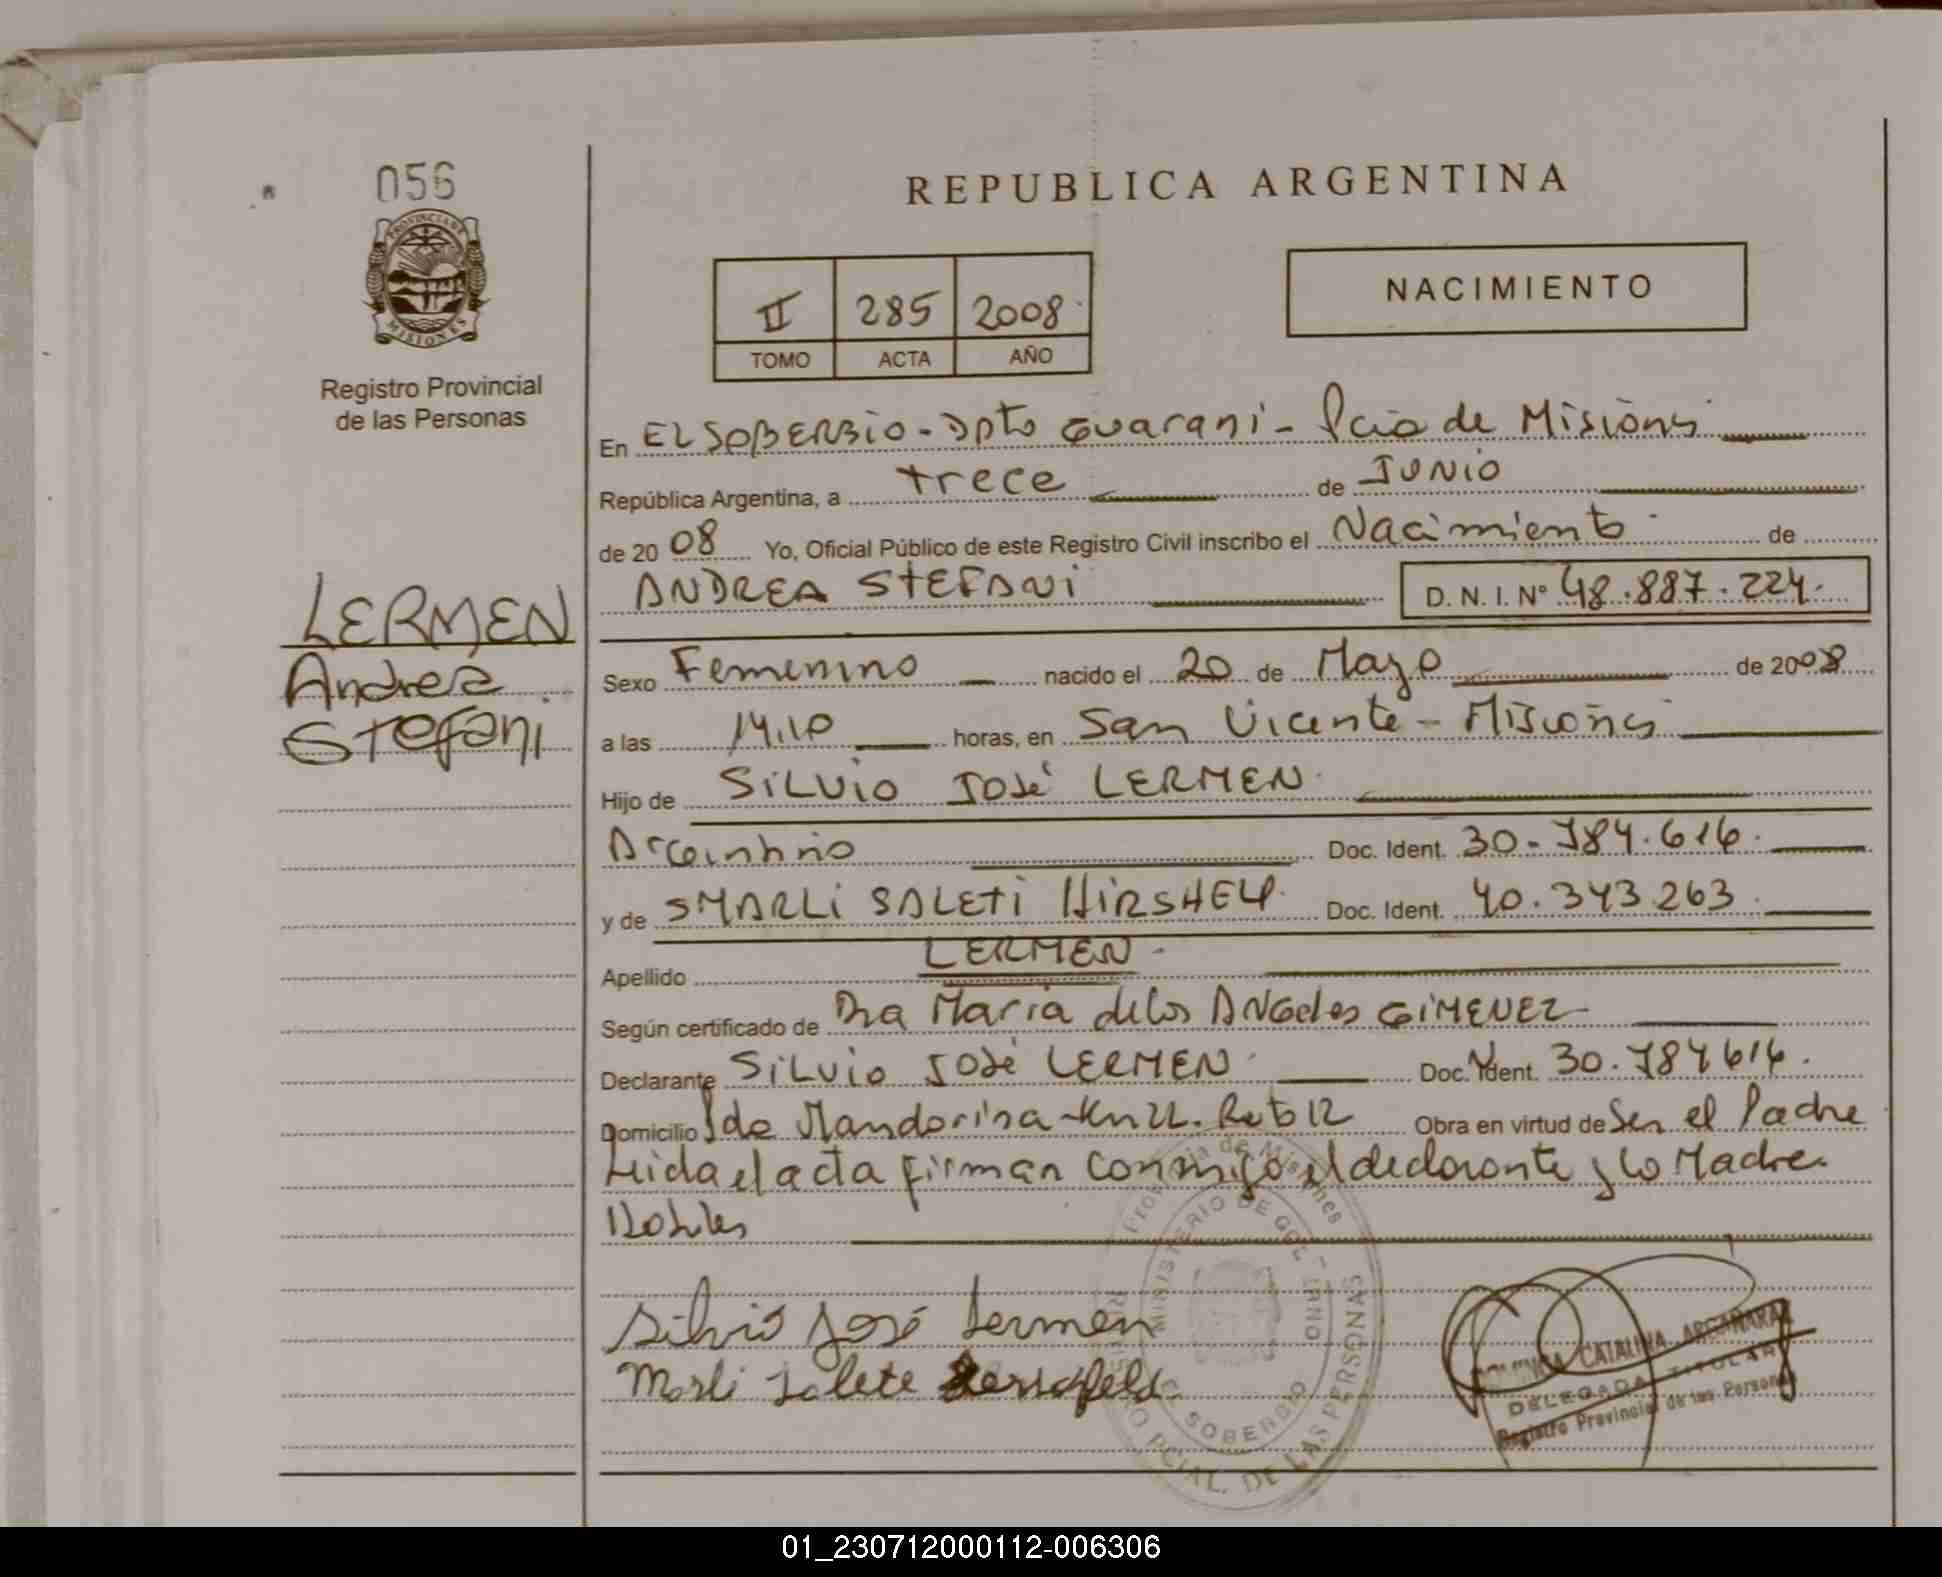 056
PROVINCIA DE
MISIONES
Registro Provincial
de las Personas
REPUBLICA ARGENTINA
II 285 2008
TOMO ACTA AÑO
NACIMIENTO
En EL SOBERBIO - Dpto Guarani - Pcia de Misiones
República Argentina, a trece de JUNIO
de 20 08 Yo, Oficial Público de este Registro Civil inscribo el Nacimiento de
ANDREA STEFANI D. N. I. Nº 48.887.224.
LERMEN
Andrea
Stefani
Sexo Femenino nacido el 20 de Mayo de 2008
a las 14.10 horas, en San Vicente - Misiones
Hijo de SILVIO JOSÉ LERMEN
Argentino Doc. Ident. 30.784.616.
y de SMARLI SALETI HIRSHELF Doc. Ident. 40.343.263
Apellido LERMEN
Según certificado de Dra Maria de los ANGeles GIMENEZ
Declarante SILVIO JOSÉ LERMEN Doc. Ident. 30.784616.
Domicilio Mandarina Obra en virtud de Ser el Padre
Leida el acta firman conmigo el declarante y la Madre
Silvio José Lermen
Marli Salete
Provincia de Misiones
MINISTERIO DE GOBIERNO
EL SOBERBIO
REGISTRO PCIAL. DE LAS PERSONAS
CATALINA ARGAÑARAZ
DELEGADA TITULAR
Registro Provincial de las Personas
01_230712000112-006306